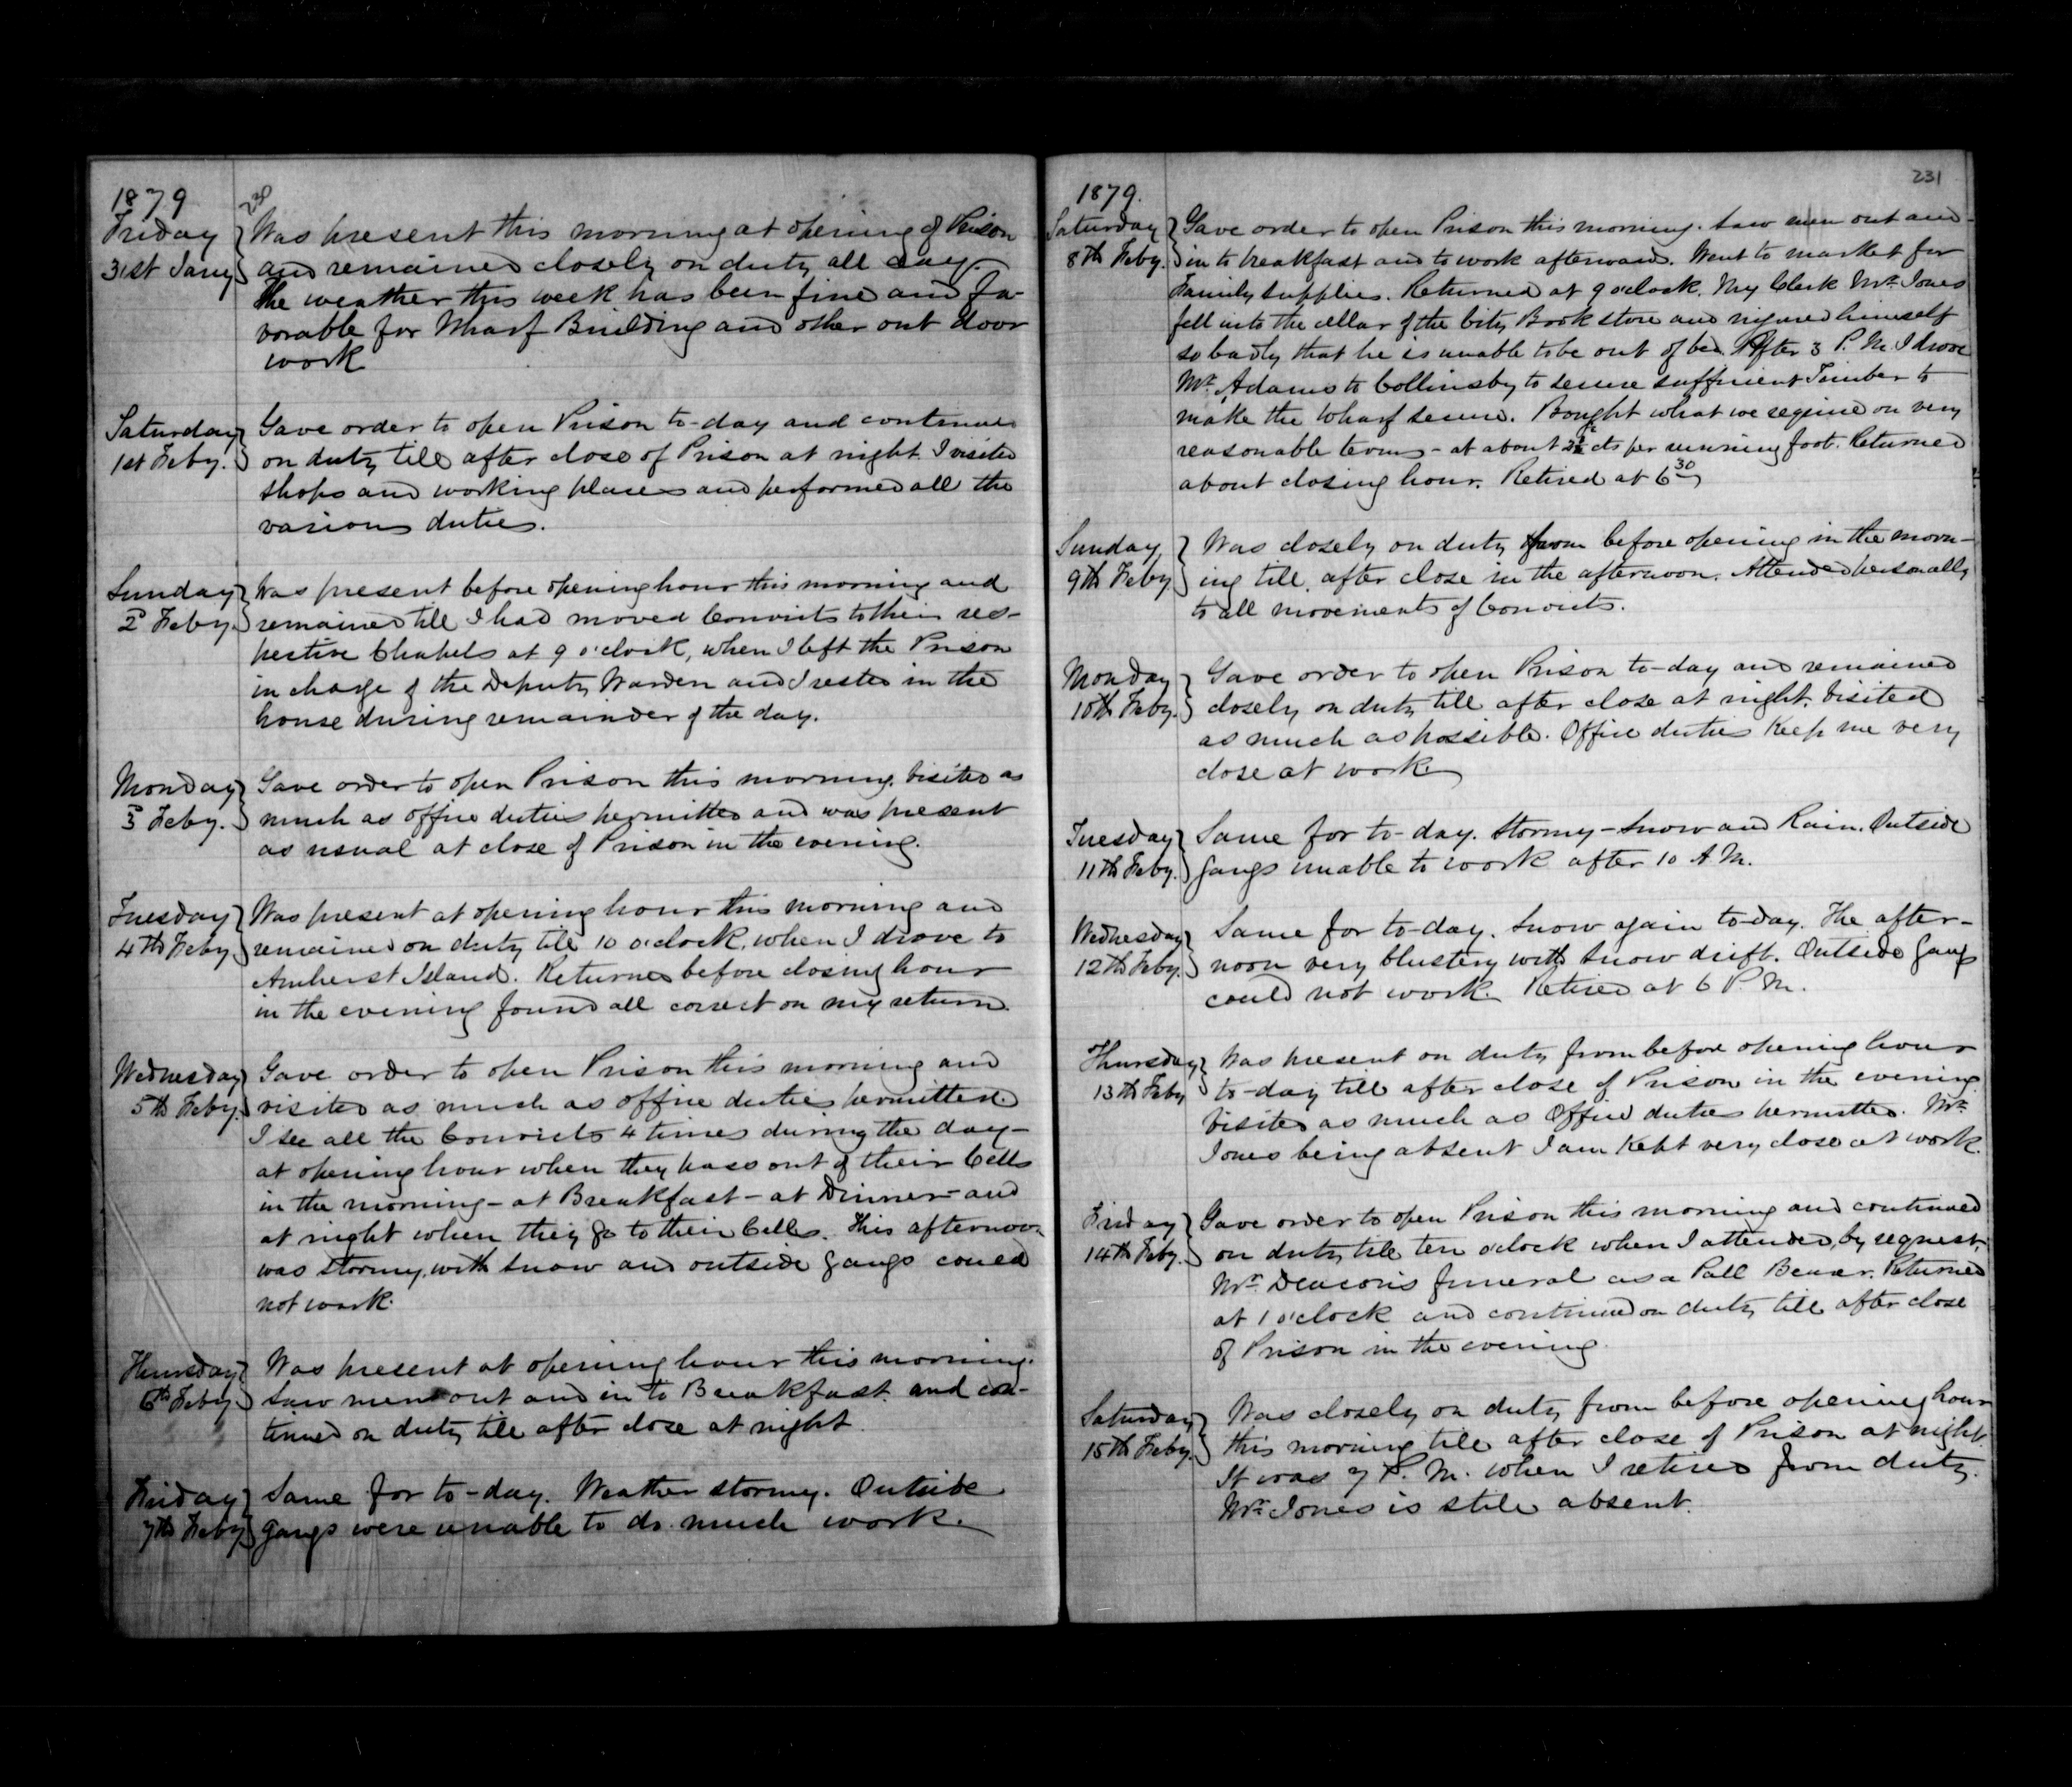 1879
230
Friday
31st Jany
Was present this morning at opening of Prison
and remained closely on duty all day.
The weather this week has been fine and fa-
vorable for Wharf Building and other out door
work
Saturday
1st Feby.
Gave order to open Prison to-day and continued
on duty till after close of Prison at night. I visited
shops and working places and performed all the
various duties.
Sunday
2d Feby.
Was present before opening hour this morning and
remained till I had moved Convicts to their res-
pective Chapels at 9 o'clock, when I left the Prison
in charge of the Deputy Warden and I rested in the
house during remainder of the day.
Monday
3d Feby.
Gave order to open Prison this morning. Visited as
much as office duties permitted and was present
as usual at close of Prison in the evening.
Tuesday
4th Feby
Was present at opening hour this morning and
remained on duty till 10 o'clock, when I drove to
Amherst Island. Returned before closing hour
in the evening found all correct on my return.
Wednesday
5th Feby.
Gave order to open Prison this morning and
visited as much as office duties permitted.
I see all the Convicts 4 times during the day-
at opening hour when they pass out of their Cells
in the morning - at Breakfast - at Dinner - and
at night when they go to their Cells. This afternoon
was stormy, with snow and outside gangs could
not work.
Thursday
6th Feby.
Was present at opening hour this morning.
Saw men out and in to Breakfast and con-
tinued on duty till after close at night.
Friday
7th Feby
Same for to-day. Weather stormy. Outside
gangs were unable to do much work.
231
1879.
Saturday
8th Feby.
Gave order to open Prison this morning. Saw men out and
in to breakfast and to work afterward. Went to market for
Family supplies. Returned at 9 o'clock. My Clerk Mr. Jones
fell into the cellar of the City Book store and injured himself
so badly that he is unable to be out of bed. After 3 P.M. I drove
Mr. Adams to Collinsby to secure sufficient Timber to
make the Wharf secure. Bought what we require on very
reasonable terms - at about 2½ cts per running foot. Returned
about closing hour. Retired at 6 30
Sunday
9th Feby
Was closely on duty from before opening in the morn-
ing till after close in the afternoon. Attended personally
to all movements of Convicts.
Monday
10th Feby.
Gave order to open Prison to-day and remained
closely on duty till after close at night. Visited
as much as possible. Office duties Keep me very
close at work
Tuesday
11th Feby.
Same for to-day. Stormy - Snow and Rain. Outside
gangs unable to work after 10 A.M.
Wednesday
12th Feby.
Same for to-day. Snow again to-day. The after-
noon very blustery with snow drift. Outside gangs
could not work. Retired at 6 P.M.
Thursday
13th Feby
Was present on duty from before opening hour
to-day till after close of Prison in the evening.
Visited as much as Office duties permitted. Mr.
Jones being absent I am Kept very close at work.
Friday
14th Feby.
Gave order to open Prison this morning and continued
on duty till ten o'clock when I attended, by request,
Mr. Deacon's funeral as a Pall Bearer. Returned
at 1 o'clock and continued on duty till after close
of Prison in the evening.
Saturday
15th Feby.
Was closely on duty from before opening hour
this morning till after close of Prison at night.
It was 7 P.M. when I retired from duty.
Mr. Jones is still absent.